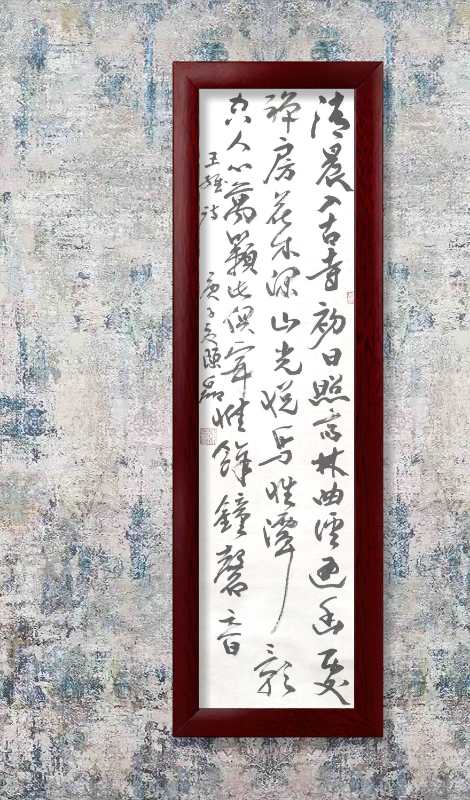 清晨入古寺初日照高林曲徑通幽處
禅房花木深山光悦鳥性潭影
空人心萬籟此俱寂惟餘鐘磬音
王維詩 庚子 陳磊